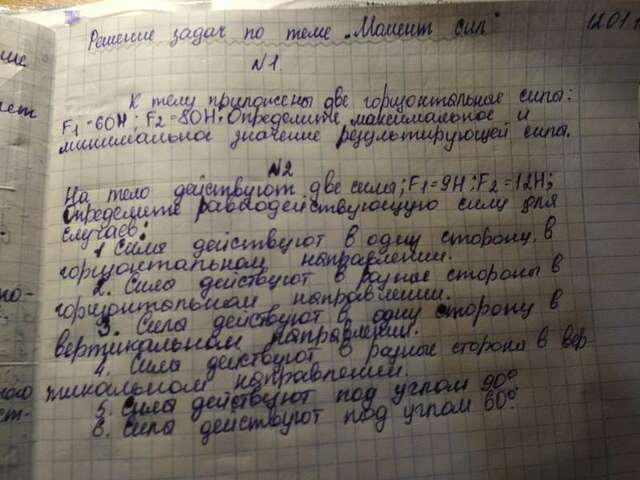 Решение задач по теме „Момент сил"
12011
N1.
К телу приложены две горизонтальные силы:
F1=60Н; F2=80Н. Определите максимальное и
минимальное значение результирующей силы.
N2
На тело действуют две силы; F1=9Н; F2=12Н;
Определите равнодействующую силу для
случаев:
1. Сила действуют в одну сторону, в
горизонтальном направлении.
2. Сила действуют в разные стороны в
горизонтальном направлении.
3. Сила действуют в одну сторону в
вертикальном направлении.
4. Сила действуют в разные сторона в вер-
тикальном направлении.
5. Сила действуют под углом 90°
6. Сила действуют под углом 60°.